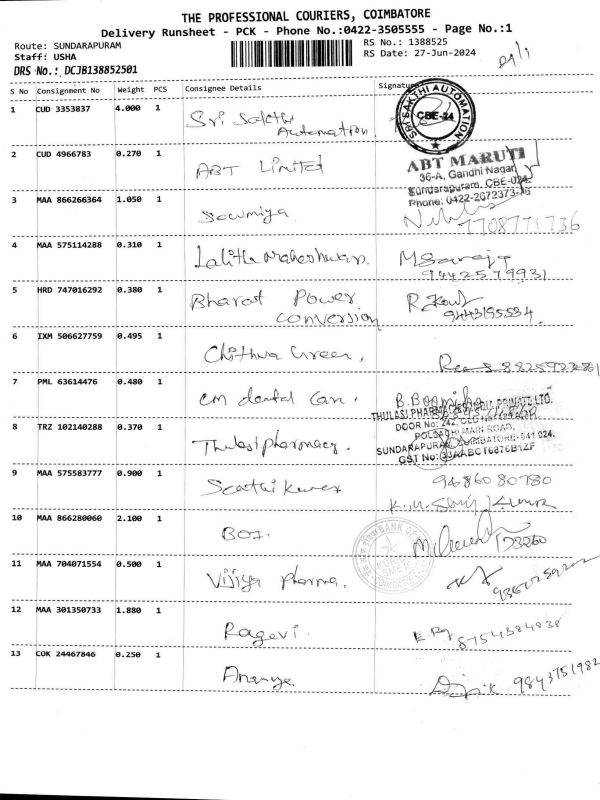 THE PROFESSIONAL COURIERS, COIMBATORE
Delivery Runsheet - PCK - Phone No.:0422-3505555 - Page No.:1
Route: SUNDARAPURAM RS No.: 1388525
Staff: USHA RS Date: 27-Jun-2024
DRS No.: DCJB138852501
S No Consignment No Weight PCS Consignee Details Signature
1 CUD 3353837 4.000 1 Sri Sakthi Automation.
SRI SAKTHI AUTOMATION
CBE-24
2 CUD 4966783 0.270 1 ABT Limited
ABT MARUTI
36-A, Gandhi Nagar,
Sundarapuram, CBE-024.
Phone: 0422-2672373
3 MAA 866266364 1.050 1 Sowmiya.
7708771736
4 MAA 575114288 0.310 1 Lalitha Maheshwari. M Saroja
9442579931
5 HRD 747016292 0.380 1 Bharat Power
conversion
6 IXM 506627759 0.495 1 Chithra Green,
7 PML 63614476 0.480 1 cm dental Care.
THULASI PHARMACIES INDIA PRIVATE LTD.
DOOR No: 242, OLD
POLLACHI MAIN ROAD,
SUNDARAPURAM, COIMBATORE-641 024.
GST No: 33AABCT6876B1ZF
8 TRZ 102140288 0.370 1 Thulasi pharmacy.
9 MAA 575583777 0.900 1 94860 80780
10 MAA 866280060 2.100 1 BOI.
BANK OF
11 MAA 704071554 0.500 1 Vijiya pharma.
12 MAA 301350733 1.880 1 Ragavi. 8754384838
13 COK 24467846 0.250 1 Ananya. 9843751982